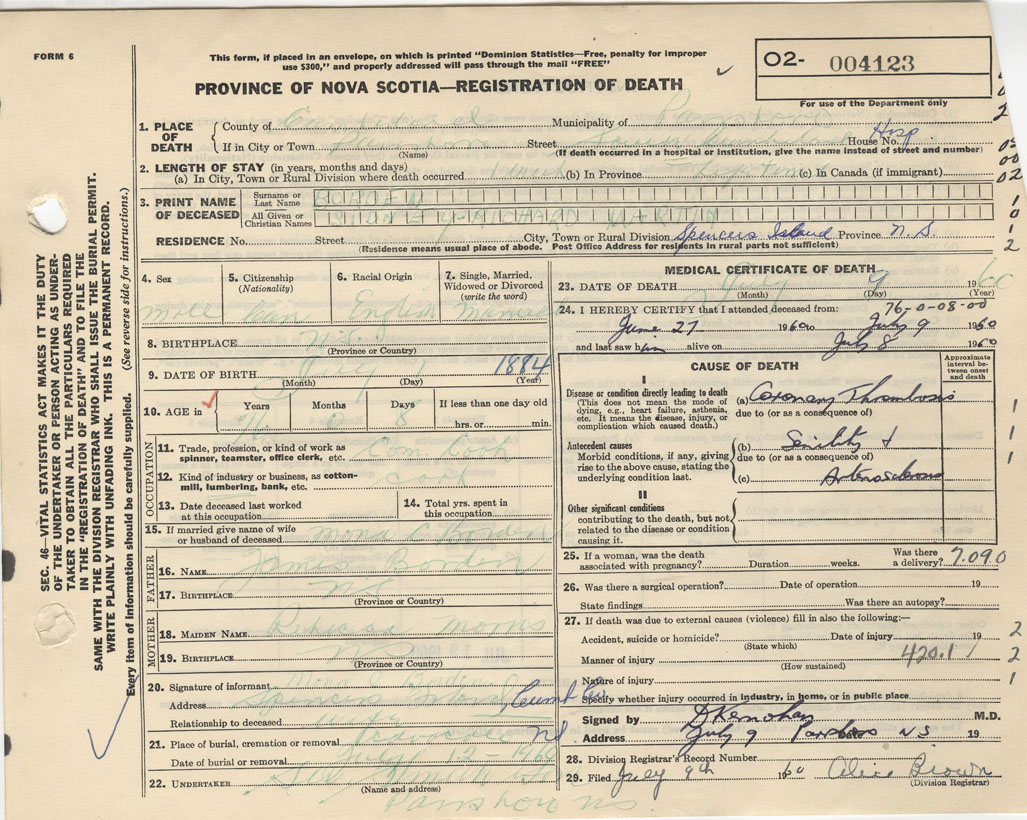 FORM 6
This form, if placed in an envelope, on which is printed "Dominion Statistics—Free, penalty for improper
use $300," and properly addressed will pass through the mail "FREE"
02- 004123
For use of the Department only
PROVINCE OF NOVA SCOTIA—REGISTRATION OF DEATH
1. PLACE OF DEATH
County of Cumberland Municipality of Parrsboro
If in City or Town Parrsboro Street House No. Hosp
(Name) (If death occurred in a hospital or institution, give the name instead of street and number)
2. LENGTH OF STAY (in years, months and days)
(a) In City, Town or Rural Division where death occurred 1 week (b) In Province Lifetime (c) In Canada (if immigrant)
3. PRINT NAME OF DECEASED
Surname or Last Name BORDEN
All Given or Christian Names SIDNEY-RICHARD MARTIN
RESIDENCE No. Street City, Town or Rural Division Spencers Island Province N.S.
(Residence means usual place of abode. Post Office Address for residents in rural parts not sufficient)
4. Sex male
5. Citizenship (Nationality) Can
6. Racial Origin English
7. Single, Married, Widowed or Divorced (write the word) Married
8. BIRTHPLACE N.S.
(Province or Country)
9. DATE OF BIRTH July 1 1884
(Month) (Day) (Year)
10. AGE in Years 76 Months 0 Days 8 If less than one day old hrs. or min.
OCCUPATION
11. Trade, profession, or kind of work as spinner, teamster, office clerk, etc. Cook
12. Kind of industry or business, as cotton-mill, lumbering, bank, etc.
13. Date deceased last worked at this occupation
14. Total yrs. spent in this occupation
15. If married give name of wife or husband of deceased Mona Borden
FATHER
16. NAME James Borden
17. BIRTHPLACE NS
(Province or Country)
MOTHER
18. MAIDEN NAME Rebecca Morris
19. BIRTHPLACE NS
(Province or Country)
20. Signature of informant Mona Borden
Address Spencers Island Cumb Co
Relationship to deceased wife
21. Place of burial, cremation or removal
Date of burial or removal July 12 - 1960
22. UNDERTAKER
(Name and address)
Parrsboro NS
MEDICAL CERTIFICATE OF DEATH
23. DATE OF DEATH July 9 1960
(Month) (Day) (Year)
76-0-08-00
24. I HEREBY CERTIFY that I attended deceased from:
June 27 1960 to July 9 1960
and last saw him alive on July 8 1960
CAUSE OF DEATH
Approximate interval between onset and death
I
Disease or condition directly leading to death (a) Coronary Thrombosis
(This does not mean the mode of dying, e.g., heart failure, asthenia, etc. It means the disease, injury, or complication which caused death.)
due to (or as a consequence of)
Antecedent causes (b) Senility &
Morbid conditions, if any, giving rise to the above cause, stating the underlying condition last.
due to (or as a consequence of)
(c) Arteriosclerosis
II
Other significant conditions
contributing to the death, but not related to the disease or condition causing it.
25. If a woman, was the death associated with pregnancy? Duration weeks. Was there a delivery? 7.090
26. Was there a surgical operation? Date of operation 19
State findings Was there an autopsy?
27. If death was due to external causes (violence) fill in also the following:—
Accident, suicide or homicide? Date of injury 19
(State which)
Manner of injury 420.1
(How sustained)
Nature of injury
Specify whether injury occurred in industry, in home, or in public place
Signed by M.D.
Address July 9 Parrsboro NS 19
28. Division Registrar's Record Number
29. Filed July 9th 1960 Alice Brown
(Division Registrar)
SEC. 46—VITAL STATISTICS ACT MAKES IT THE DUTY
OF THE UNDERTAKER OR PERSON ACTING AS UNDER-
TAKER TO OBTAIN ALL THE PARTICULARS REQUIRED
IN THE "REGISTRATION OF DEATH" AND TO FILE THE
SAME WITH THE DIVISION REGISTRAR WHO SHALL ISSUE THE BURIAL PERMIT.
WRITE PLAINLY WITH UNFADING INK. THIS IS A PERMANENT RECORD.
Every item of information should be carefully supplied. (See reverse side for instructions.)